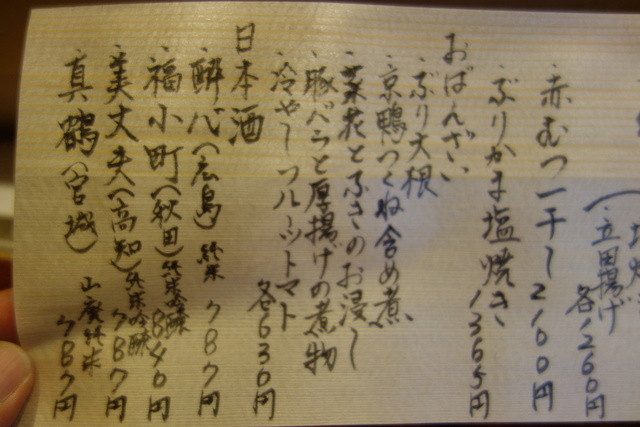 ・立田揚げ
各1260円
赤むつ一干し2100円
・ぶりかま塩焼き1365円
おばんざい
・ぶり大根
・京鴨つくね含め煮
・菜花とふきのお浸し
・豚バラと厚揚げの煮物
・冷やしフルーツトマト
各630円
日本酒
・酔心(広島)純米 787円
・福小町(秋田)純米吟醸 840円
・美丈夫(高知)純米吟醸 787円
・真鶴(宮城)山廃純米 787円